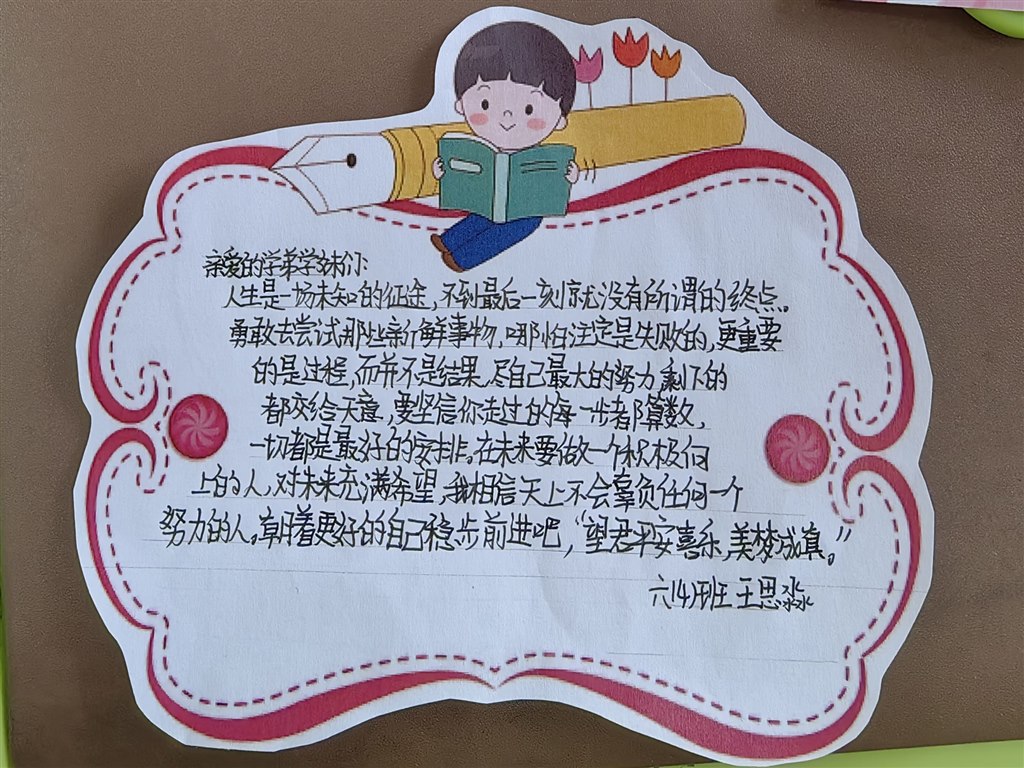 亲爱的学弟学妹们:
人生是一场未知的征途,不到最后一刻就没有所谓的终点。
勇敢去尝试那些新鲜事物,哪怕注定是失败的,更重要
的是过程,而并不是结果。尽自己最大的努力,剩下的
都交给天意,要坚信你走过的每一步都算数,
一切都是最好的安排。在未来要做一个积极向
上的人,对未来充满希望,我相信天上不会辜负任何一个
努力的人。朝着更好的自己稳步前进吧,“望君平安喜乐,美梦成真。”
六(4)班 王思淼